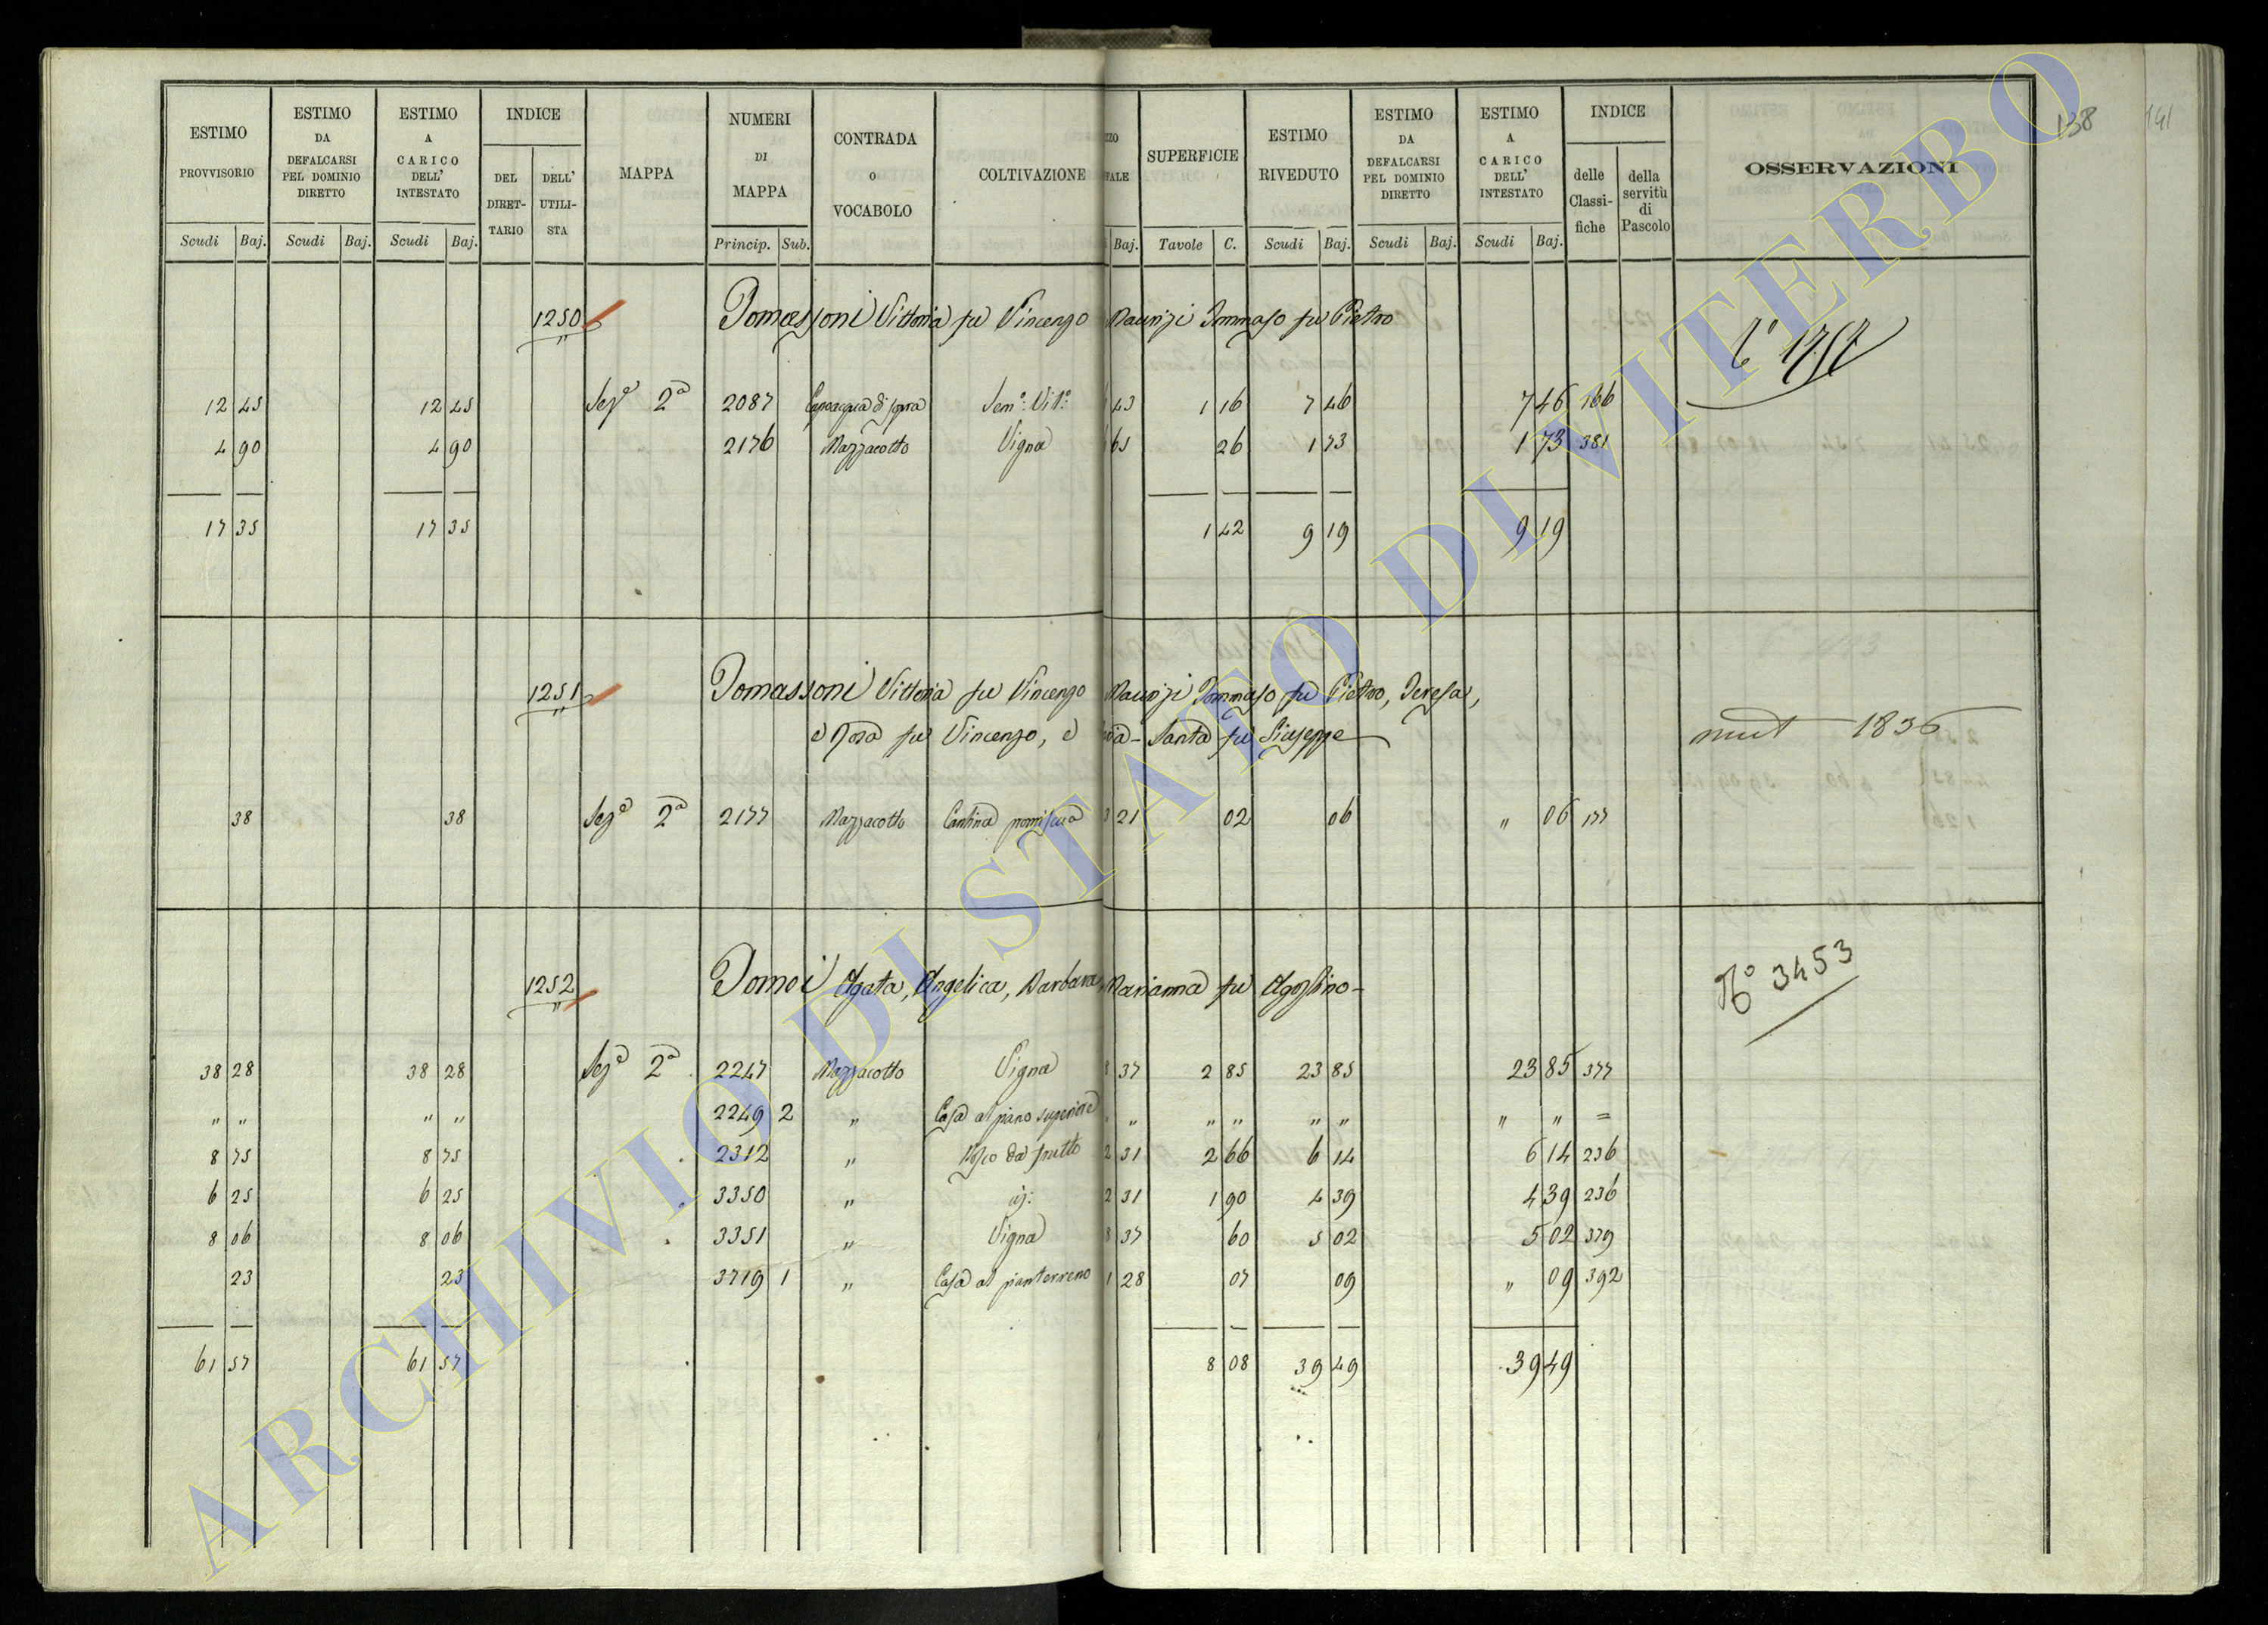 138 141
ESTIMO PROVVISORIO
ESTIMO DA DEFALCARSI PEL DOMINIO DIRETTO
ESTIMO A CARICO DELL' INTESTATO
INDICE
DEL DIRET-TARIO
DELL' UTILI-STA
MAPPA
NUMERI DI MAPPA
CONTRADA o VOCABOLO
COLTIVAZIONE
SUPERFICIE
ESTIMO RIVEDUTO
ESTIMO DA DEFALCARSI PEL DOMINIO DIRETTO
ESTIMO A CARICO DELL' INTESTATO
INDICE
delle Classi-fiche
della servitù di Pascolo
OSSERVAZIONI
Scudi Baj. Scudi Baj. Scudi Baj. Princip. Sub. Baj. Tavole C. Scudi Baj. Scudi Baj. Scudi Baj.
1250 Tomassoni Vittoria fu Vincenzo Maurizi Tommaso fu Pietro
12 45 12 45 Sez.e 2a 2087 Capoacqua di sopra Sem.o Vit.o 43 1 16 7 46 7 46 166
4 90 4 90 2176 Mazzacotto Vigna 65 26 1 73 1 73 381
17 35 17 35 1 42 9 19 9 19
1251 Tomassoni Vittoria fu Vincenzo Maurizi Tommaso fu Pietro, Teresa,
e Rosa fu Vincenzo, e Santa fu Giuseppe
mut 1836
38 38 Sez.e 2a 2177 Mazzacotto Cantina promiscua 21 02 06 " 06 177
1252 Tomei Agata, Angelica, Barbara, Marianna fu Agostino
No 3453
38 28 38 28 Sez.e 2a 2247 Mazzacotto Vigna 8 37 2 85 23 85 23 85 377
" " " " 2249 2 " Casa al piano superiore " " " " " " " =
8 75 8 75 2312 " Bosco da frutto 2 31 2 66 6 14 6 14 236
6 25 6 25 3350 " id: 2 31 1 90 4 39 4 39 236
8 06 8 06 3351 " Vigna 8 37 60 5 02 5 02 379
23 23 3719 1 " Casa al pianterreno 1 28 07 09 " 09 392
61 57 61 57 8 08 39 49 39 49
ARCHIVIO DI STATO DI VITERBO